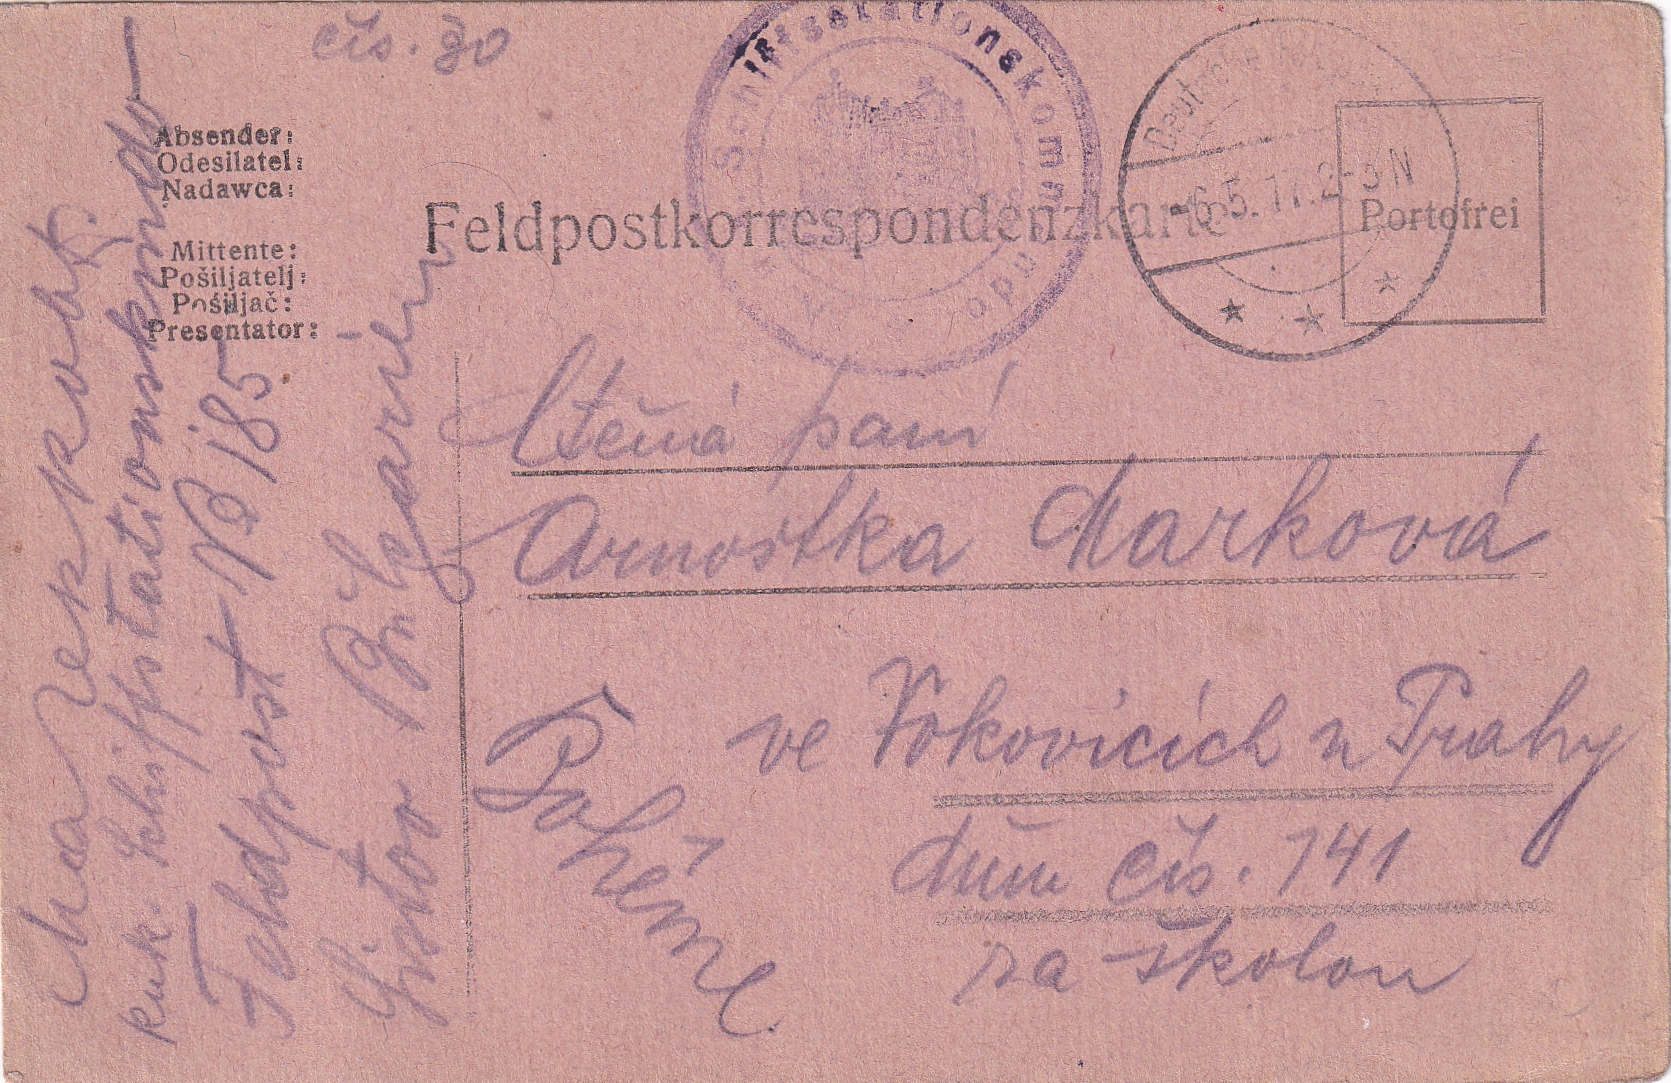 čís. 30
Absender:
Odesilatel:
Nadawca:
Mittente:
Pošiljatelj:
Pošiljač:
Presentator:
Feldpostkorrespondenzkarte
Portofrei
Schiffsstationskommando
Deutsche
-6.5.17.2-3N
Ctěná paní
Arnoštka Marková
ve Vokovicích u Prahy
dům čís. 141
za školou
Bohême
kuk. Schiffstationskmndo
Feldpost No 185
Sistov